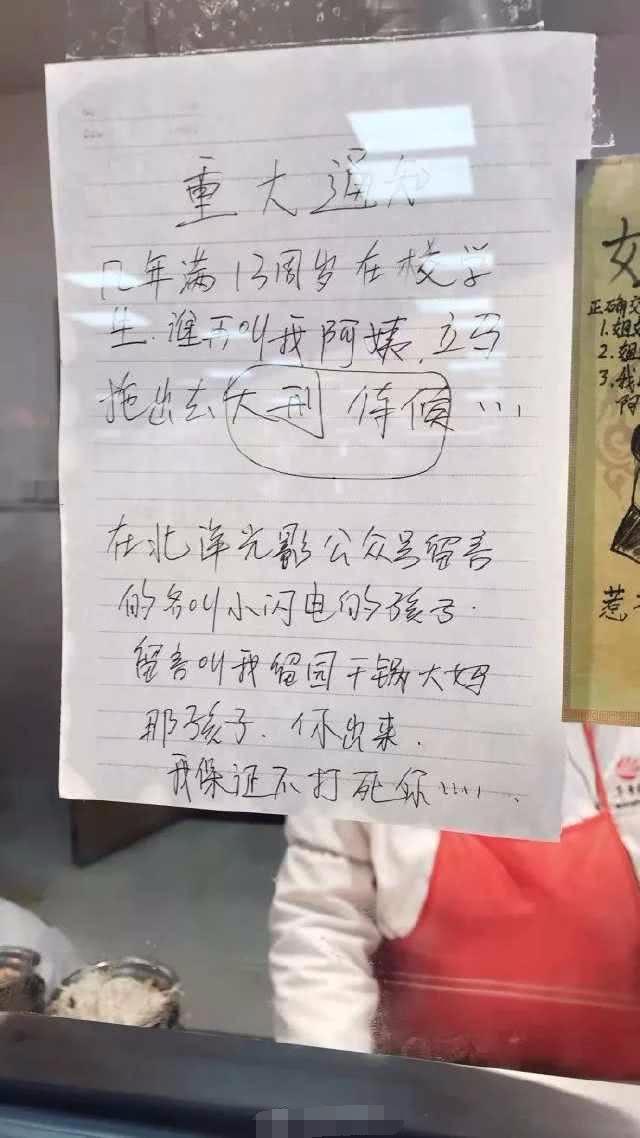 重大通知
几年满13周岁在校学
生.谁再叫我阿姨.立马
拖出去大刑 侍候...
在北洋光影公众号留言
的名叫小闪电的孩子.
留言叫我留园干锅大妈
那孩子.你出来.
我保证不打死你.....
女
正确交
1.姐
2.姐
3.我
阿
惹